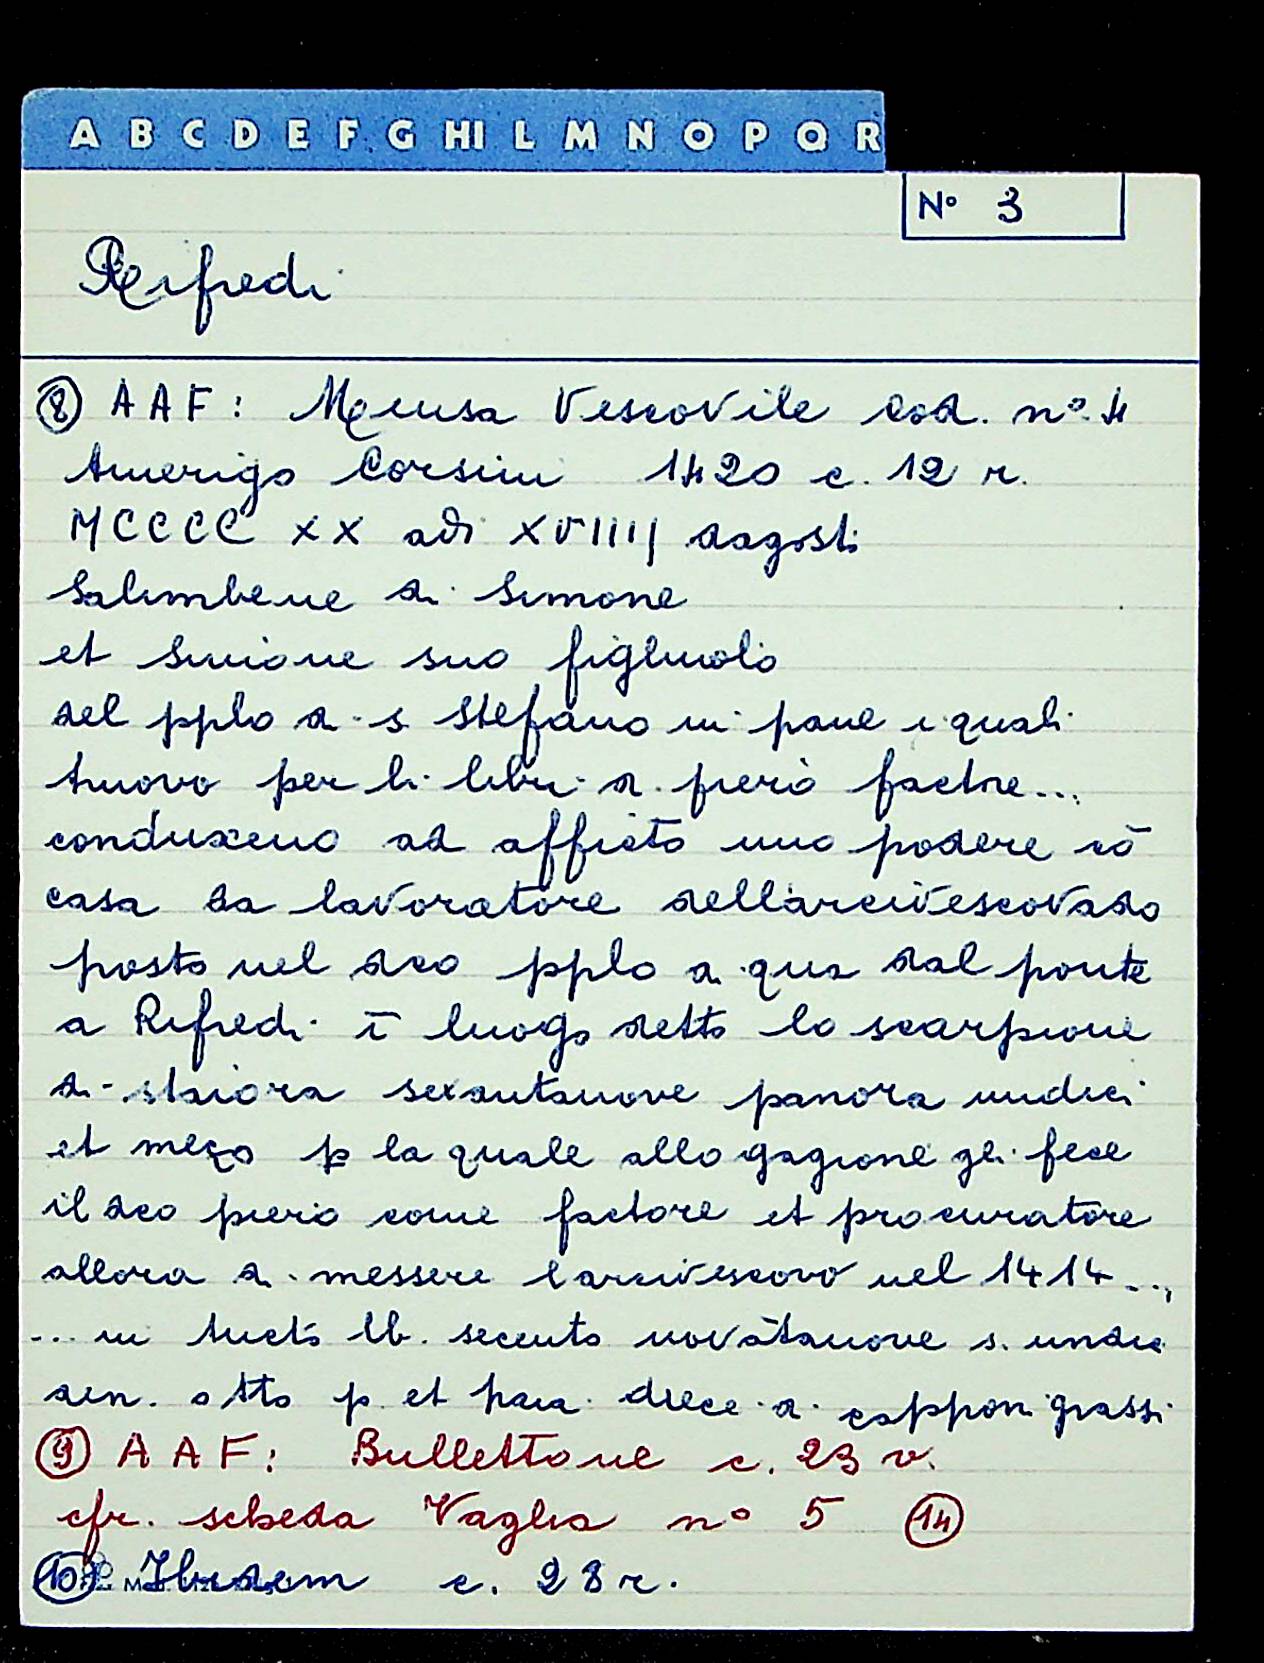 A B C D E F G HI L M N O P Q R
N° 3
Rifredi
⑧ AAF: Mensa Vescovile cod. n° 4
Amerigo Corsini 1420 c. 12 r.
MCCCC XX adi XVIIII dagosti
Salimbene di Simone
et Simone suo figluolo
del pplo di s Stefano in pane i quali
truovo per li libri di piero factore...
conduxeno ad afficto uno podere cō
casa da lavoratore dell'arcivescovado
posto nel dco pplo di qua dal ponte
a Rifredi ī luogo detto lo scarpione
di staiora sexantanove panora undici
et mezo p la quale allogagione gli fece
il dco piero come factore et procuratore
allora di messere larcivescovo nel 1414...
... in tucto lb. secento novātanove s. undic
den. otto p. et paia diece di capponi grassi
⑨ AAF: Bullettone c. 23 v.
cfr. scheda Vaglia n° 5 ⑭
⑩ Ibidem c. 28 r.